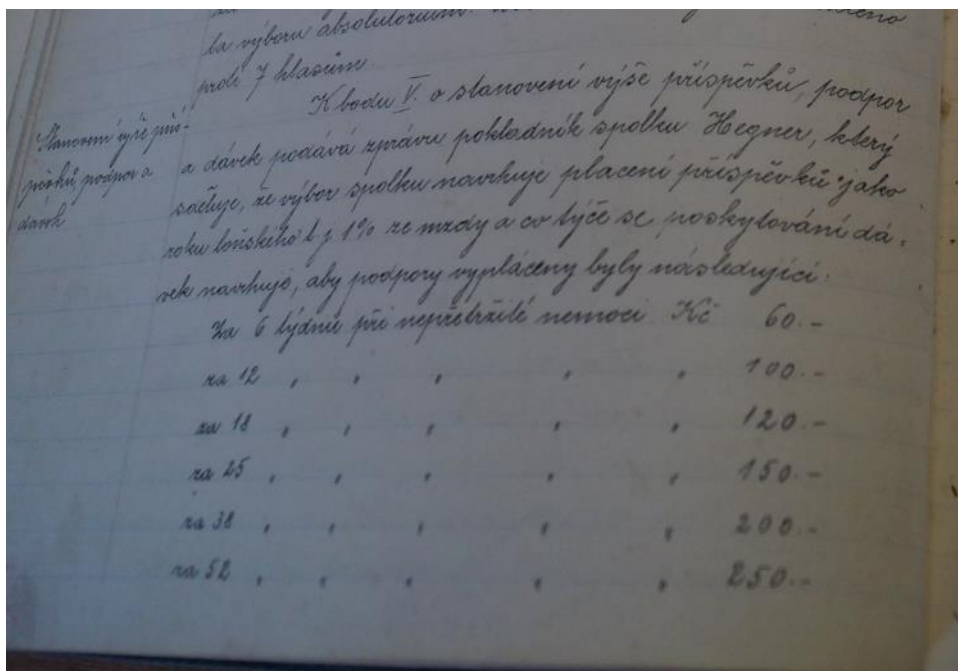 la výboru absolutorium.
proti 7 hlasům
K bodu V. o stanovení výše příspěvků, podpor
Stanovení výše pří-
spěvků, podpor a
dávek
a dávek podává zprávu pokladník spolku Hegner, který
sděluje, že výbor spolku navrhuje placení příspěvků jako
roku loňského t. j. 1% ze mzdy a co týče se poskytování dá-
vek navrhuje, aby podpory vypláceny byly následující:
Za 6 týdnů při nepřetržité nemoci Kč 60.-
za 12 " " " " " 100.-
za 18 " " " " " 120.-
za 25 " " " " " 150.-
za 38 " " " " " 200.-
za 52 " " " " " 250.-